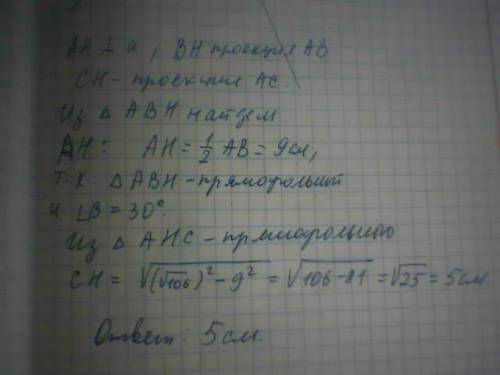 AH ⊥ a, BH проекция AB
CH - проекция AC.
Из △ ABH найдем
AH: AH = 1/2 AB = 9 см,
т.к. △ ABH - прямоугольный
и ∠B = 30°.
Из △ AHC - прямоугольного
CH = √((√106)² - 9²) = √(106 - 81) = √25 = 5 см
Ответ: 5 см.